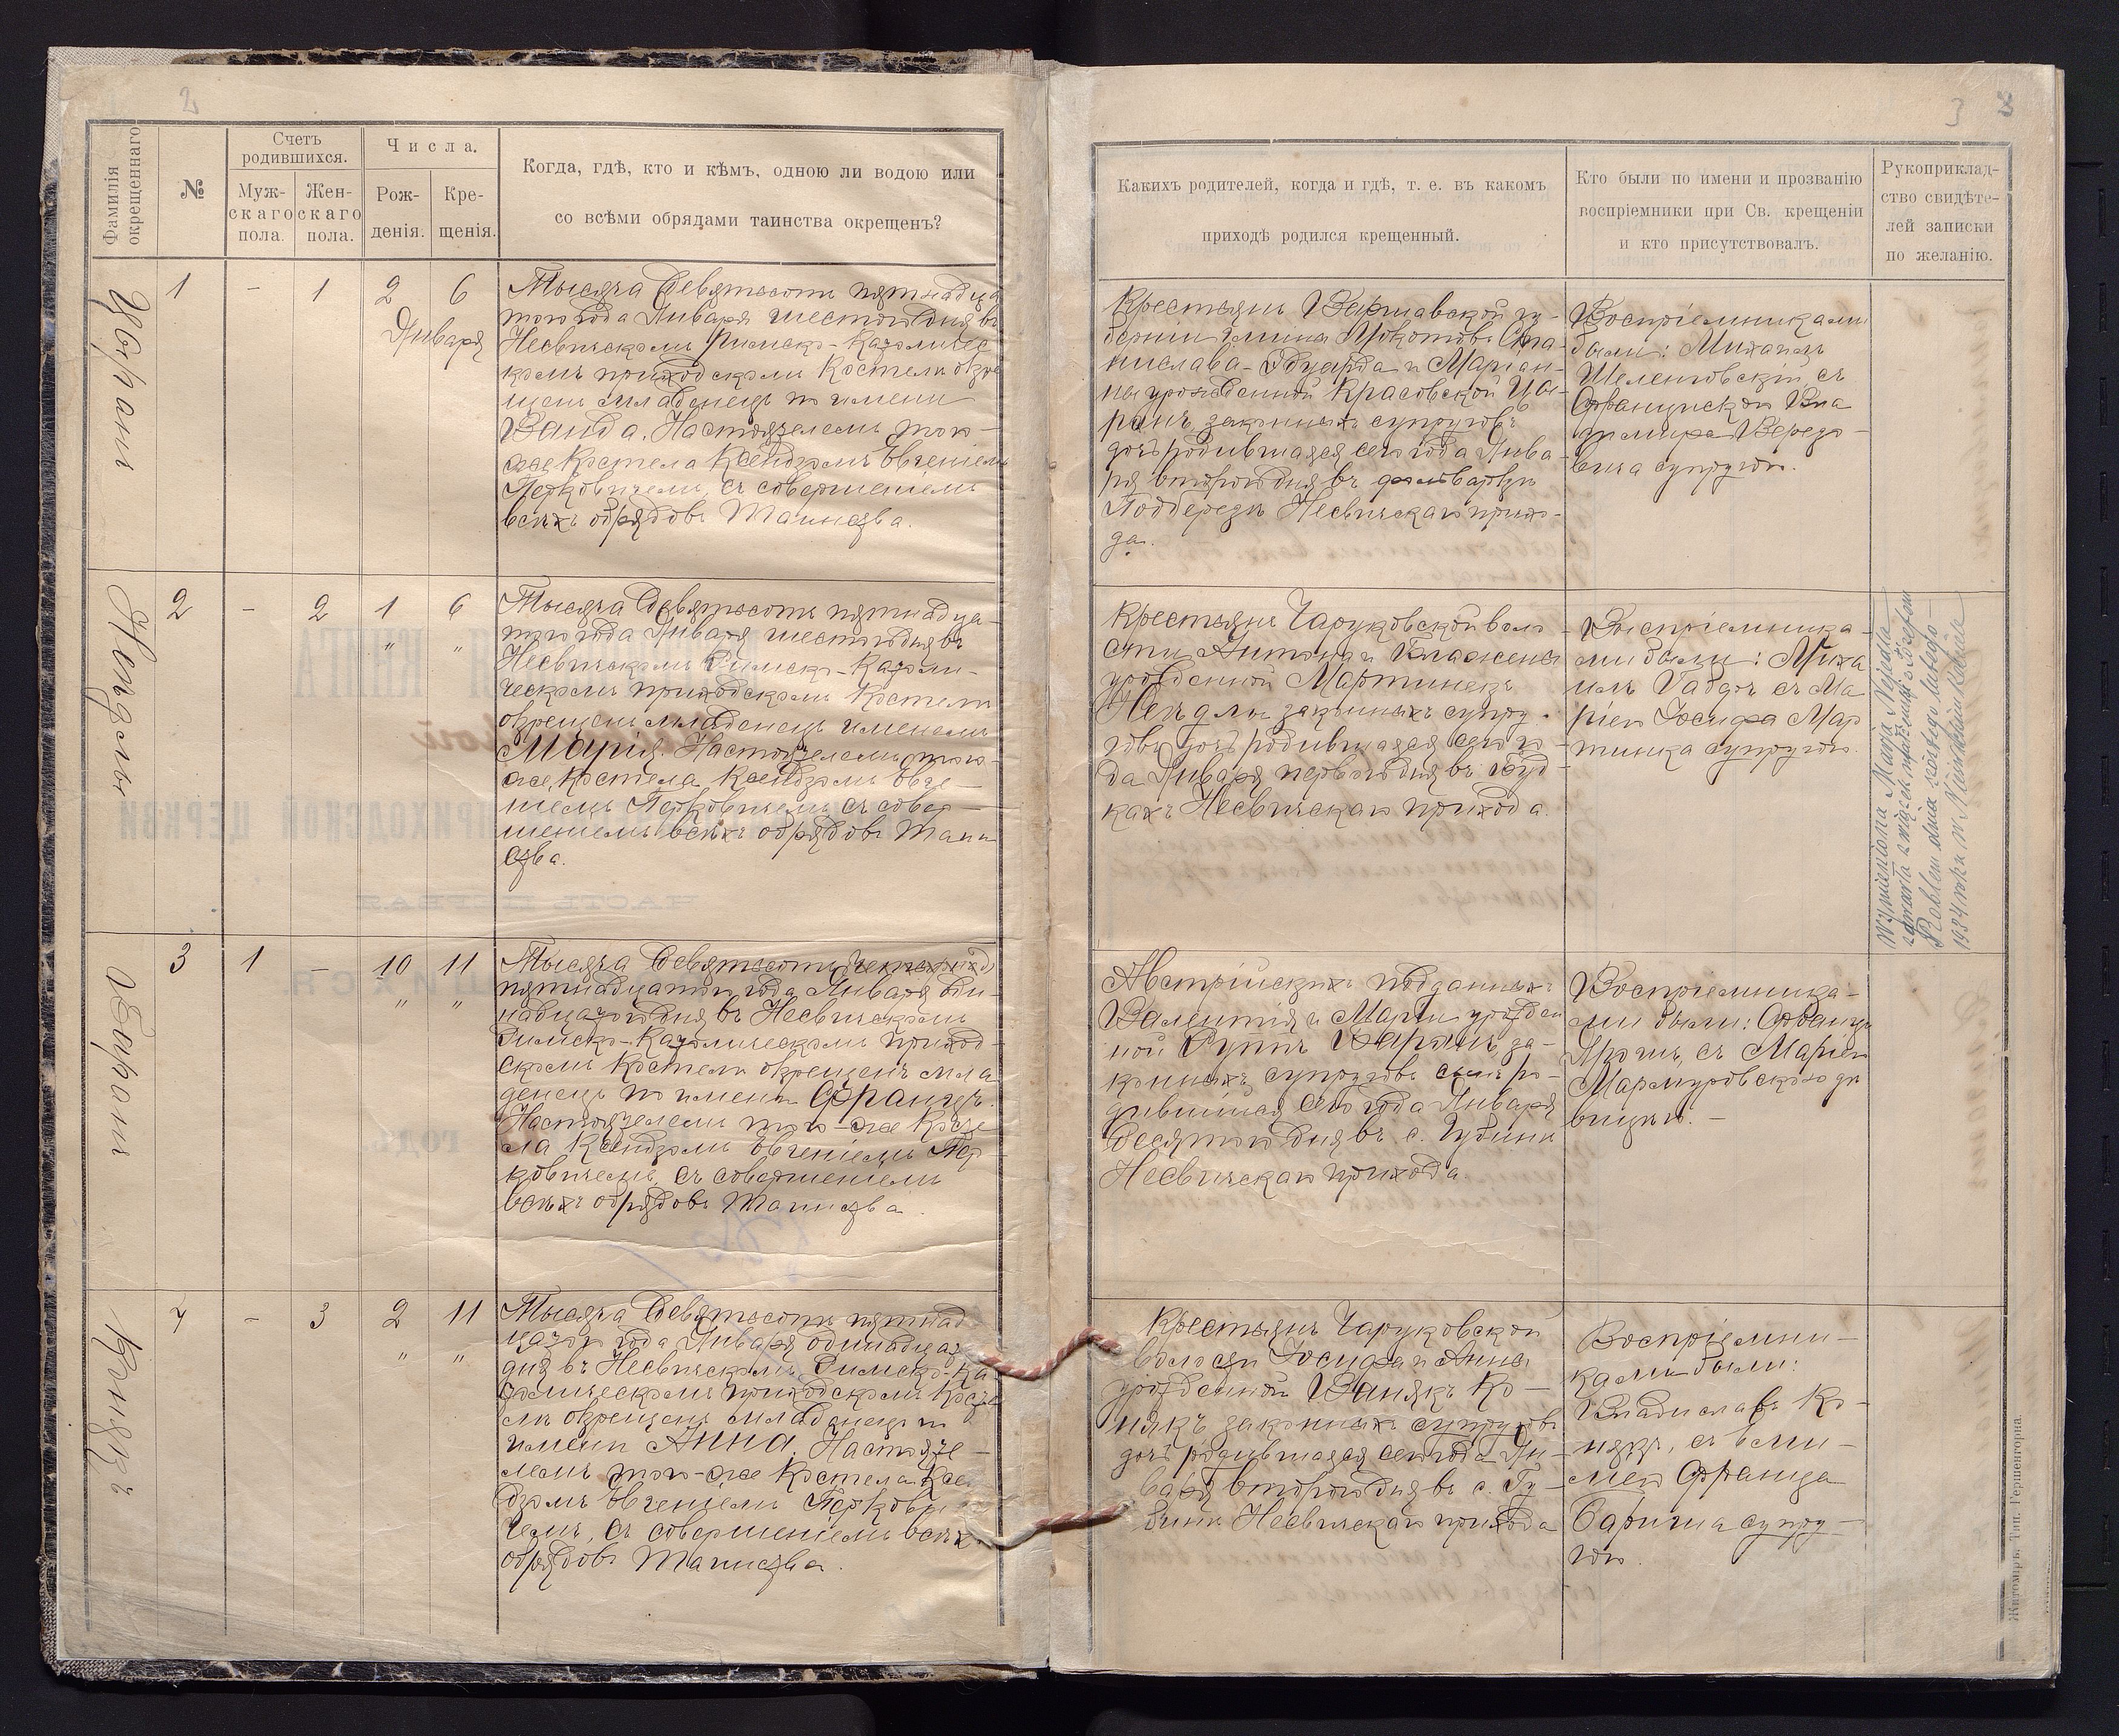 2
Фамилія
окрещеннаго
№
Счетъ
родившихся.
Муж-
скаго
пола.
Жен-
скаго
пола.
Числа.
Рож-
денія.
Кре-
щенія.
Когда, гдѣ, кто и кѣмъ, одною ли водою или
со всѣми обрядами таинства окрещенъ?
1
-
1
2
6
Января
Тысяча девятьсотъ пятнадца
того года Января шестого дня въ
Несвичскомъ Римско-Католичес
комъ приходскомъ Костелѣ окре
щенъ младенецъ по имени
Ванда. Настоятелемъ того-
же Костела Ксендзомъ Евгеніемъ
Перковичемъ, съ совершеніемъ
всѣхъ обрядовъ Таинства.
2
-
2
1
6
"
"
Тысяча девятьсотъ пятнадца-
того года Января шестого дня въ
Несвичскомъ Римско-Католи-
ческомъ приходскомъ Костелѣ
окрещенъ младенецъ именемъ
Марія. Настоятелемъ того-
же Костела Ксендзомъ Евге-
ніемъ Перковичемъ, съ совер-
шеніемъ всѣхъ обрядовъ Таин
ства.
3
1
-
10
11
"
"
Тысяча девятьсотъ
пятнадцатого года Января оди-
надцатого дня въ Несвичскомъ
Римско-Католическомъ приход-
скомъ Костелѣ окрещенъ мла
денецъ по имени Францъ.
Настоятелемъ того-же Косте
ла Ксендзомъ Евгеніемъ Пер
ковичемъ, съ совершеніемъ
всѣхъ обрядовъ Таинства.
4
-
3
2
11
"
"
Конякъ
Тысяча девятьсотъ пятнад
цатого года Января одинадцат
дня въ Несвичскомъ Римско-Ка
толическомъ приходскомъ Косте
лѣ окрещенъ младенецъ по
имени Анна. Настояте-
лемъ того-же Костела Ксен
дзомъ Евгеніемъ Перкови
чемъ, съ совершеніемъ всѣхъ
обрядовъ Таинства.
3
Какихъ родителей, когда и гдѣ, т. е. въ какомъ
приходѣ родился крещенный.
Кто были по имени и прозванію
воспріемники при Св. крещеніи
и кто присутствовалъ.
Рукоприклад-
ство свидѣте-
лей записки
по желанію.
Крестьянъ Варшавской гу-
берніи гмина Мокотовъ Ста-
нислава-Эдуарда и Маріан-
ны урожденной Красовской
законныхъ супруговъ
дочь родившаяся сего года Янва-
ря второго дня въ фольваркѣ
Подберезѣ Несвичскаго прихо-
да.
Воспріемниками
были: Михаилъ
съ
Францискою Вла
димира
супругою.
Крестьянъ Чаруковской воло
сти Антона и
урожденной Мартинекъ
законныхъ супру-
говъ дочь родившаяся сего го-
да Января перваго дня въ Буд-
кахъ Несвичскаго прихода.
Воспріемника-
ми были: Миха
илъ съ Ма
ріею Іосифа Мар
тинка супругою.
Wymieniona Marja
zawarła związek małżeński z Józefem
dnia lutego
1934 roku w Nieświczu
Австрійскихъ подданныхъ
Валентія и Маріи урожден
ной за-
конныхъ супруговъ сынъ ро-
дившійся сего года Января
десятого дня въ с.
Несвичскаго прихода.
Воспріемника-
ми были: Францъ
съ Маріею
Мармуровскою дѣ
вицею.-
Крестьянъ Чаруковской
волости Іосифа и Анны
урожденной Ванякъ Ко-
някъ законныхъ супруговъ
дочь родившаяся сего года Ян-
варя второго дня въ с.
Несвичскаго прихода
Воспріемни-
ками были:
Владиславъ Ко-
някъ, съ Эми-
ліею Франца
супру-
гою.
Житоміръ, Тип. Гершенгорна.